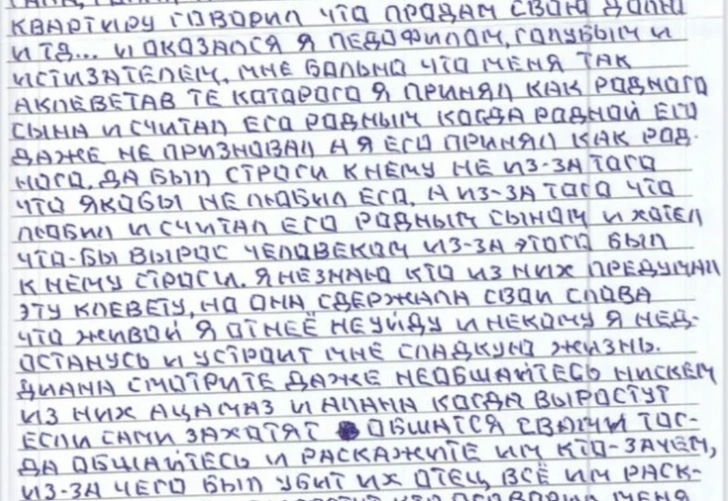 КВАРТИРУ ГОВОРИЛ ЧТО ПРОДАМ СВОЮ ДОЛЮ
И ТД... И ОКАЗАЛСЯ Я ПЕДОФИЛОМ, ГОЛУБЫМ И
ИСТИЗАТЕЛЕМ, МНЕ БОЛЬНО ЧТО МЕНЯ ТАК
АКЛЕВЕТАВ ТЕ КОТОРОГО Я ПРИНЯЛ КАК РОДНОГО
СЫНА И СЧИТАЛ ЕГО РОДНЫМ КОГДА РОДНОЙ ЕГО
ДАЖЕ НЕ ПРИЗНОВАЛ А Я ЕГО ПРИНЯЛ КАК РОД-
НОГО. ДА БЫЛ СТРОГИ К НЕМУ НЕ ИЗ-ЗА ТОГО
ЧТО ЯКОБЫ НЕ ЛЮБИЛ ЕГО, А ИЗ-ЗА ТОГО ЧТО
ЛЮБИЛ И СЧИТАЛ ЕГО РОДНЫМ СЫНОМ И ХОТЕЛ
ЧТО-БЫ ВЫРОС ЧЕЛОВЕКОМ ИЗ-ЗА ЭТОГО БЫЛ
К НЕМУ СТРОГИ. Я НЕЗНАЮ КТО ИЗ НИХ ПРЕДУМАЛ
ЭТУ КЛЕВЕТУ, НО ОНА СДЕРЖАЛА СВОИ СЛОВА
ЧТО ЖИВОЙ Я ОТ НЕЁ НЕ УЙДУ И НЕКОМУ Я НЕД-
ОСТАНУСЬ И УСТРОИТ МНЕ СЛАДКУЮ ЖИЗНЬ.
ДИАНА СМОТРИТЕ ДАЖЕ НЕОБЩАЙТЕСЬ НИСКЕМ
ИЗ НИХ АЦАМАЗ И АЛАНА КОГДА ВЫРОСТУТ
ЕСЛИ САМИ ЗАХОТЯТ ОБЩАТСЯ СВАМИ ТОГ-
ДА ОБЩАЙТЕСЬ И РАСКАЖИТЕ ИМ КТО-ЗАЧЕМ,
ИЗ-ЗА ЧЕГО БЫЛ УБИТ ИХ ОТЕЦ, ВСЁ ИМ РАСК-